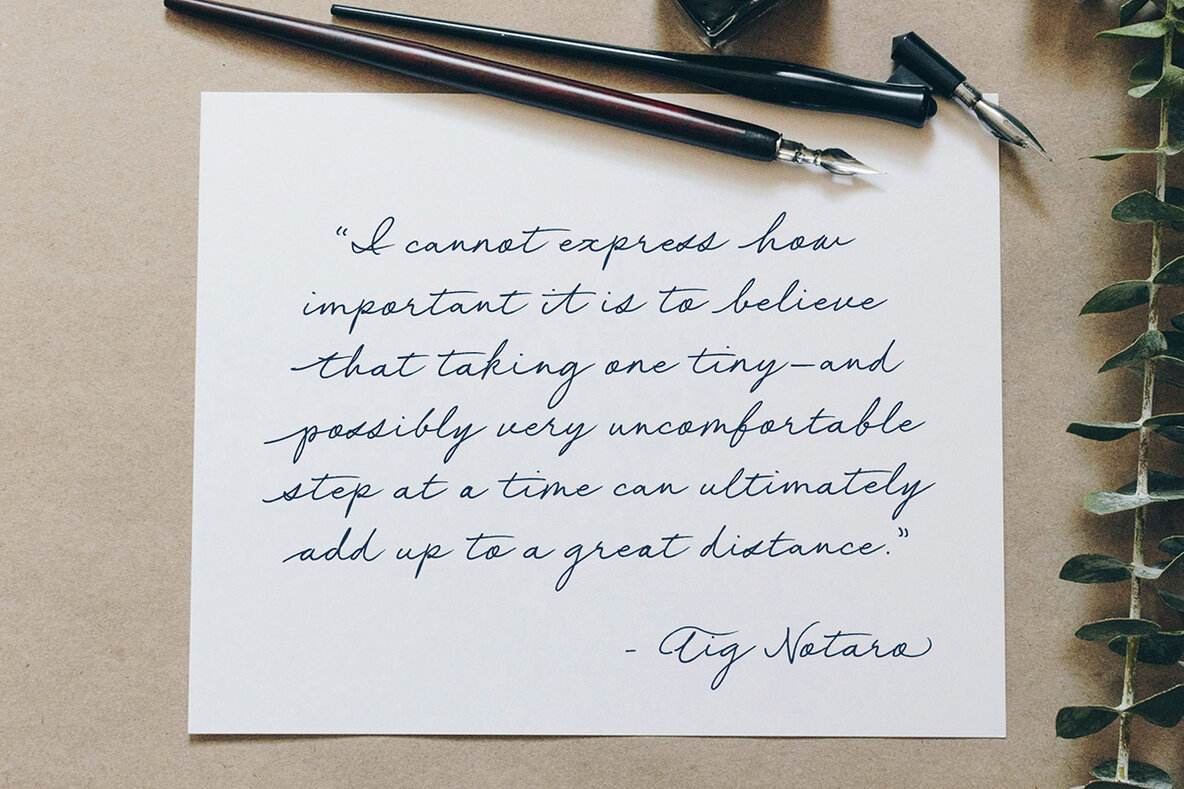 “I cannot express how
important it is to believe
that taking one tiny—and
possibly very uncomfortable
step at a time can ultimately
add up to a great distance.”
- Tig Notaro